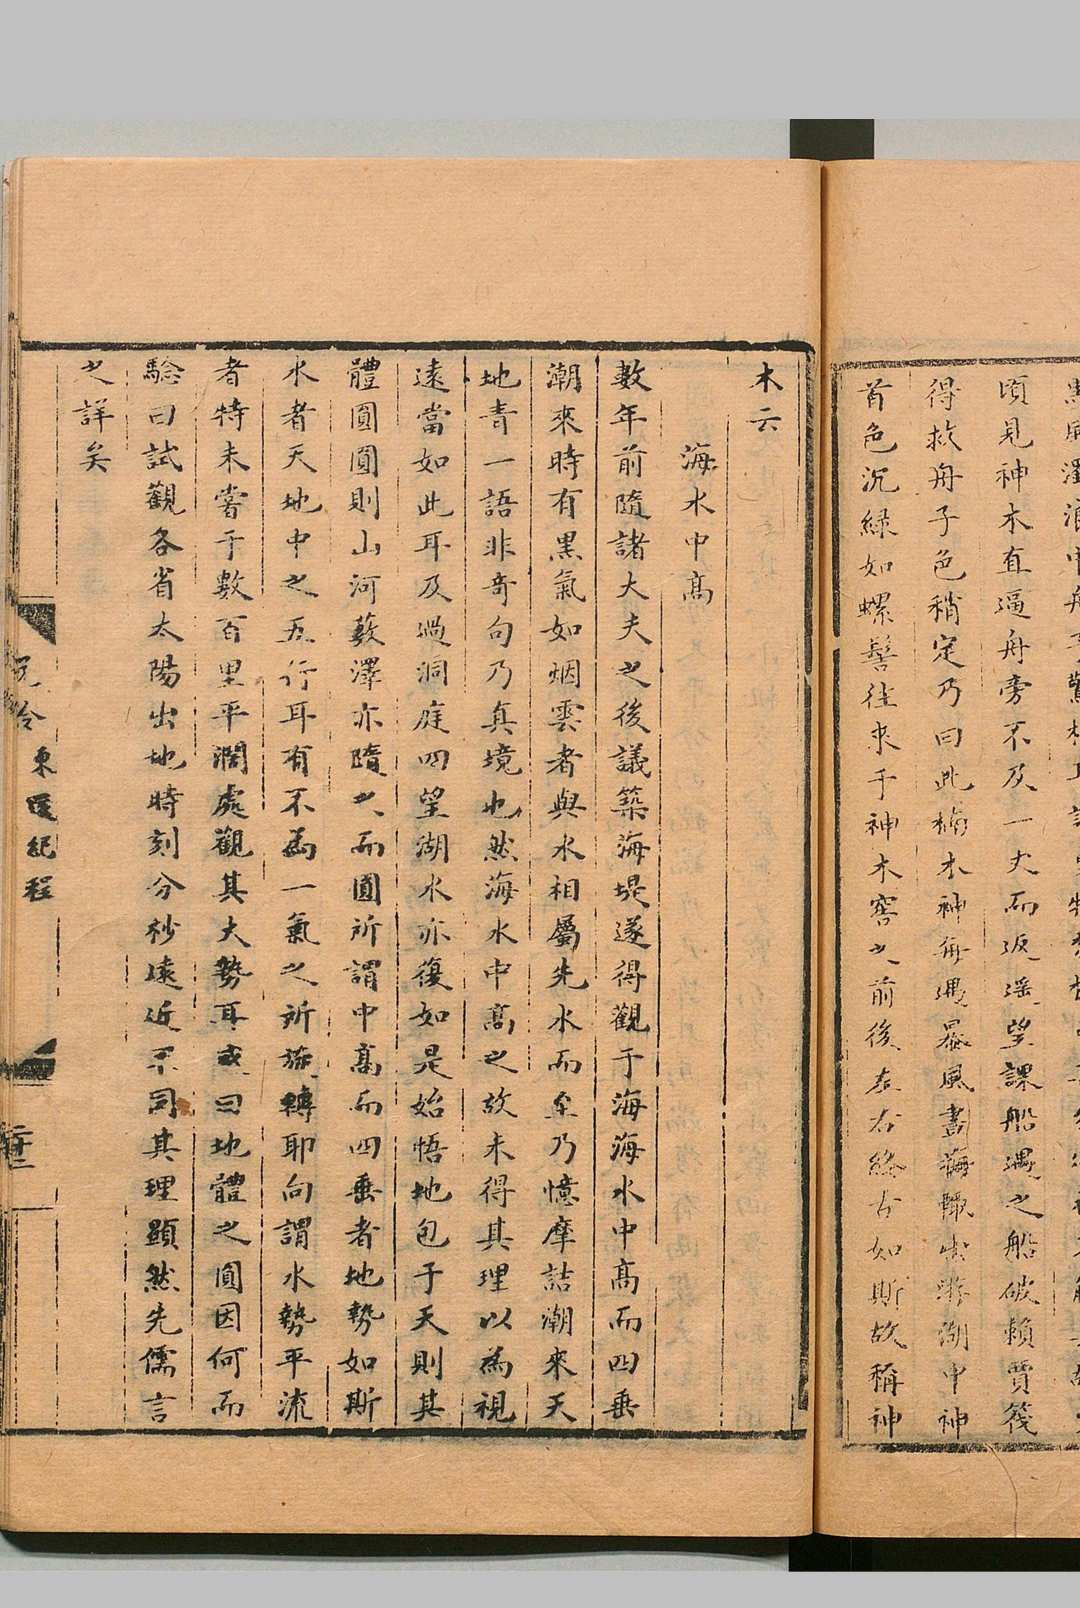 頃見神木直逼舟旁不及一丈而返遥望課船遇之船破賴賈筏
得救舟子色稍定乃曰此楠木神每遇暴風晝晦輒出游湖中神
首色沉緑如螺髻往來于神木窖之前後左右終古如斯故稱神
木云
海水中高
數年前隨諸大夫之後議築海堤遂得觀于海海水中高而四垂
潮來時有黒氣如烟雲者與水相屬先水而至乃憶摩詰潮來天
地青一語非奇句乃真境也然海水中高之故未得其理以為視
遠當如此耳及過洞庭四望湖水亦復如是始悟地包于天則其
體圓圓則山河藪澤亦隨之而圓所謂中高而四垂者地勢如斯
水者天地中之五行耳有不為一氣之所旋轉耶向謂水勢平流
者特未嘗于數百里平濶處觀其大勢耳或曰地體之圓因何而
驗曰試觀各省太陽出地時刻分秒遠近不同其理顯然先儒言
之詳矣
東還紀程
二十二